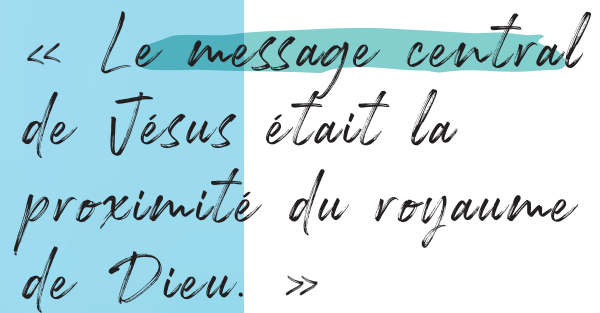 « Le message central
de Jésus était la
proximité du royaume
de Dieu. »